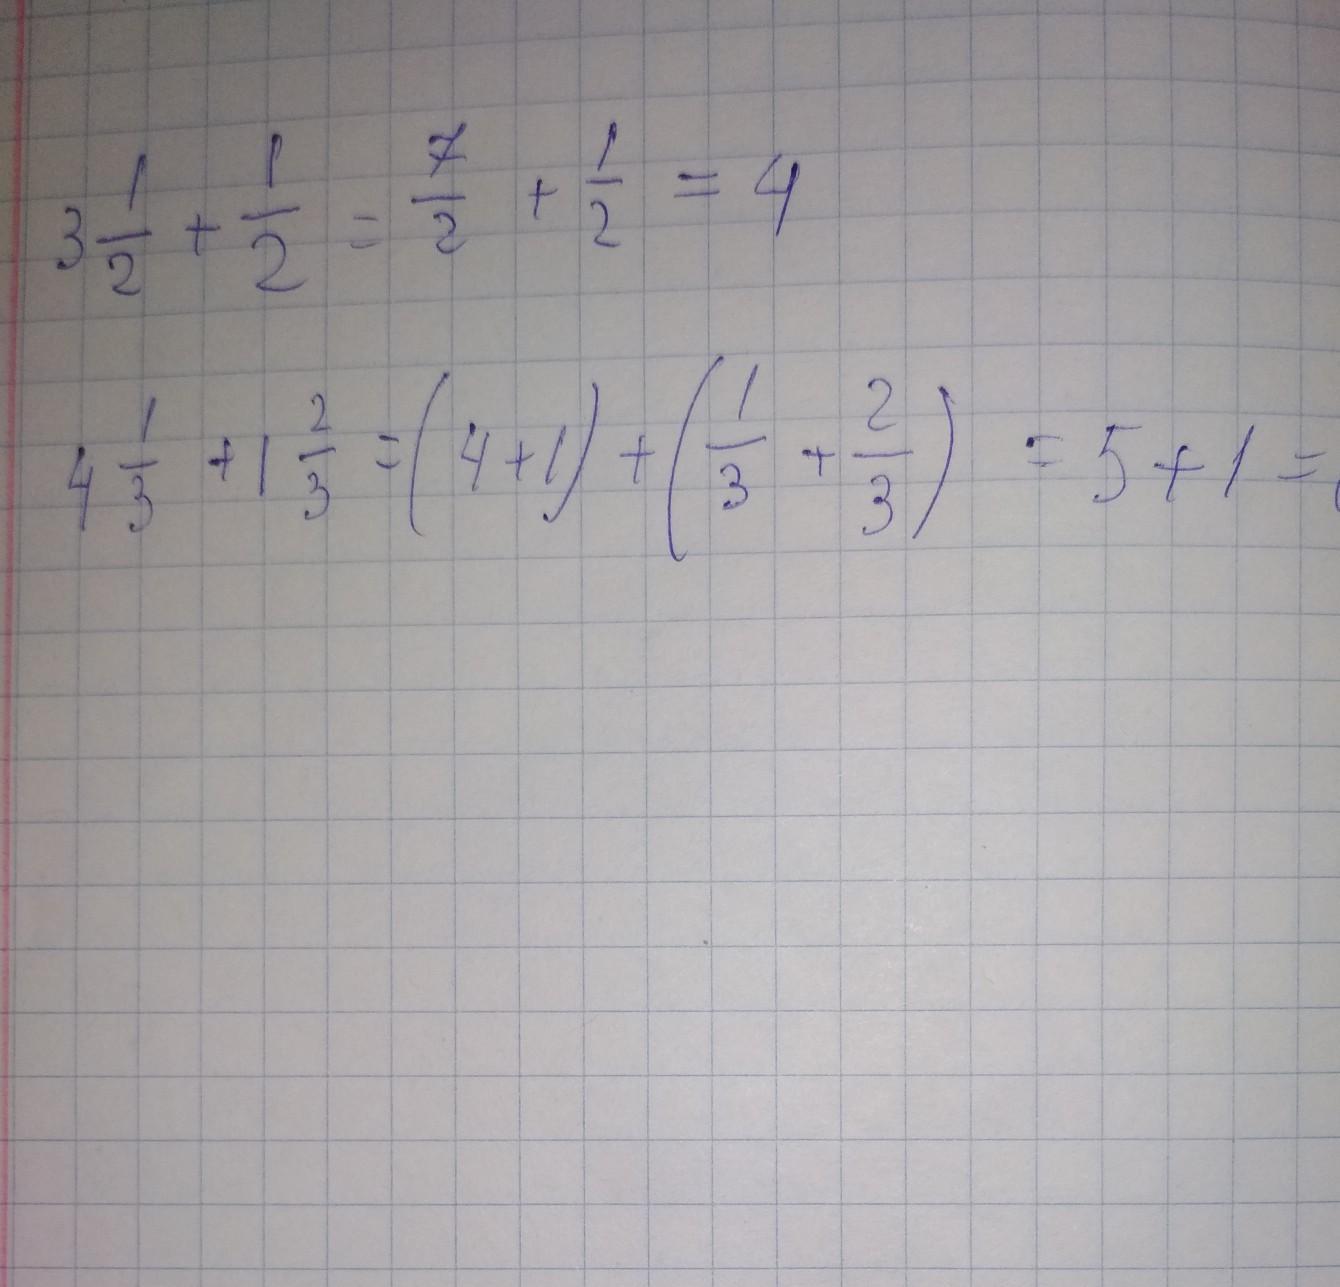 3 1/2 + 1/2 = 7/2 + 1/2 = 4
4 1/3 + 1 2/3 = (4+1) + (1/3 + 2/3) = 5+1 =